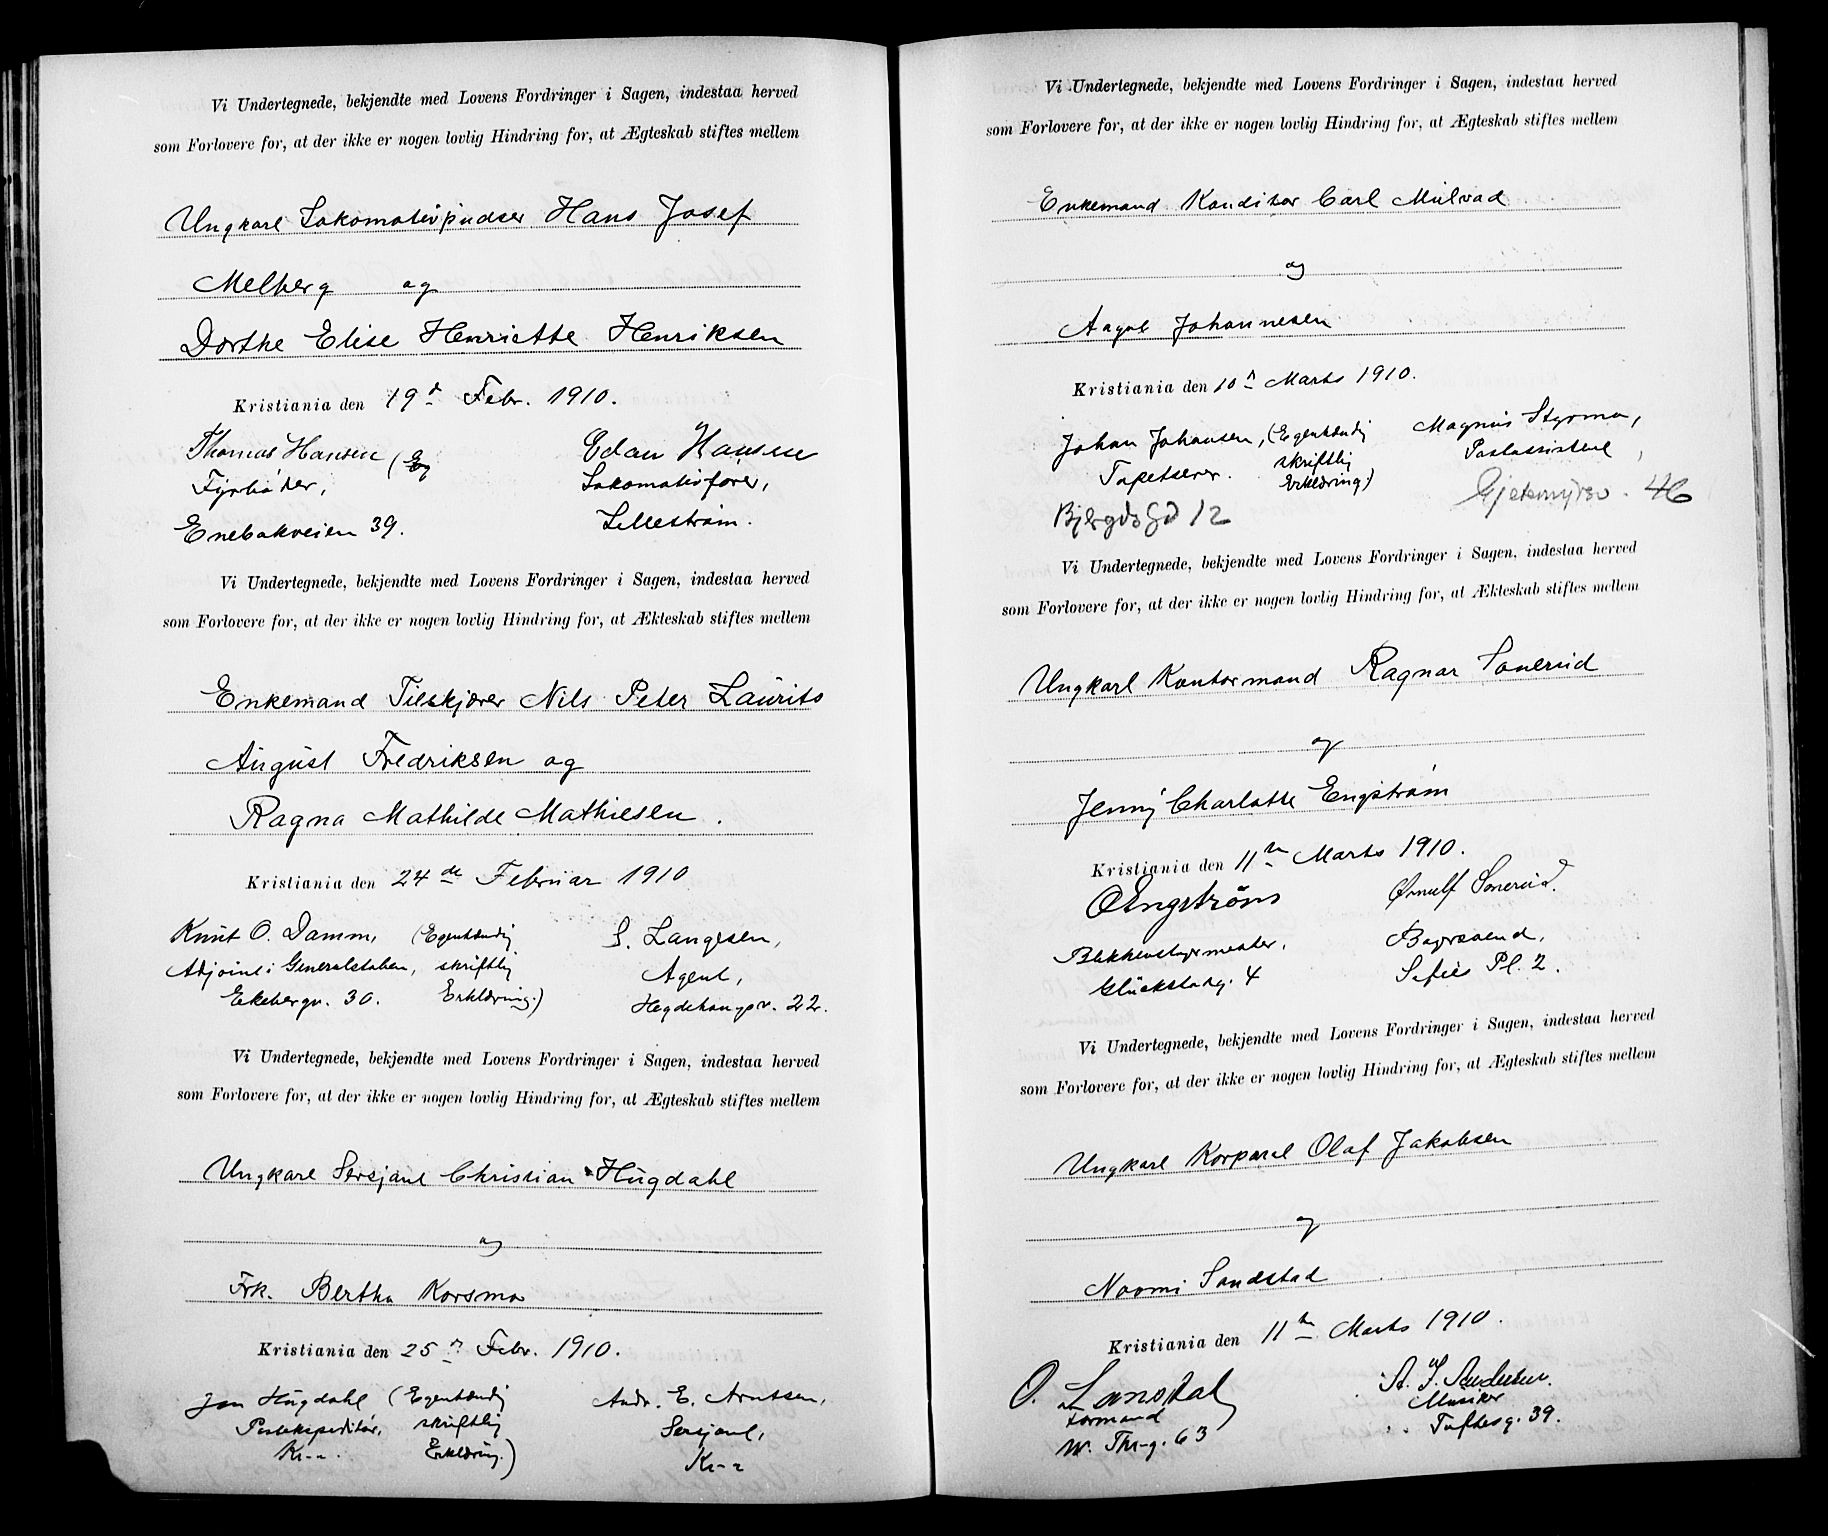 Vi Undertegnede, bekjendte med Lovens Fordringer i Sagen, indestaa herved
som Forlovere for, at der ikke er nogen lovlig Hindring for, at Ægteskab stiftes mellem
Ungkarl Lokomotivpudser Hans Josef
Melberg og
Dorthe Elise Henriette Henriksen
Kristiania den 19d Febr. 1910.
Thomas Hansen Edan Hansen
Fyrbøder, Lokomotivfører,
Enebakveien 39. Lillestrøm.
Vi Undertegnede, bekjendte med Lovens Fordringer i Sagen, indestaa herved
som Forlovere for, at der ikke er nogen lovlig Hindring for, at Ækteskab stiftes mellem
Enkemand Tilskjærer Nils Peter Laurits
August Fredriksen og
Ragna Mathilde Mathiesen.
Kristiania den 24de Februar 1910
Knut O. Damm, (Egenhændig S. Langesen,
Adjoint i Generalstaben, skriftlig Agent,
Ekebergv. 30. Erklæring.) Hegdehaugsv. 22.
Vi Undertegnede, bekjendte med Lovens Fordringer i Sagen, indestaa herved
som Forlovere for, at der ikke er nogen lovlig Hindring for, at Ægteskab stiftes mellem
Ungkarl Sersjant Christian Hugdahl
og
Frk. Bertha Korsmo
Kristiania den 25 Febr. 1910.
Jon Hugdahl (Egenhændig Andr. E. Arntsen,
Postekspeditør, skriftlig Sersjant,
Kr-a. Erklæring.) Kr-a
Vi Undertegnede, bekjendte med Lovens Fordringer i Sagen, indestaa herved
som Forlovere for, at der ikke er nogen lovlig Hindring for, at Ægteskab stiftes mellem
Enkemand Konditor Carl Milvad
og
Aagot Johannesen
Kristiania den 10 Marts 1910.
Johan Johansen, (Egenhændig Magnus Styrmo,
Tapetserer. skriftlig Postassistent,
Erklæring.)
Bjergdsgd 12 Gjetemyrsv. 46
Vi Undertegnede, bekjendte med Lovens Fordringer i Sagen, indestaa herved
som Forlovere for, at der ikke er nogen lovlig Hindring for, at Ækteskab stiftes mellem
Ungkarl Kontormand Ragnar Sonerud
og
Jenny Charlotte Engstrøm
Kristiania den 11te Marts 1910.
O Engstrøm Ørnulf Sonerud.
Blikkenslagermester, Bagersvend,
Glückstadg. 4 Sofies Pl. 2.
Vi Undertegnede, bekjendte med Lovens Fordringer i Sagen, indestaa herved
som Forlovere for, at der ikke er nogen lovlig Hindring for, at Ægteskab stiftes mellem
Ungkarl Korporal Olaf Jakobsen
og
Noomi Sandstad
Kristiania den 11te Marts 1910.
O. Lonsdal A. J. Andersen.
Formand Musiker
W. Thr-g. 63 Toftesg. 39.